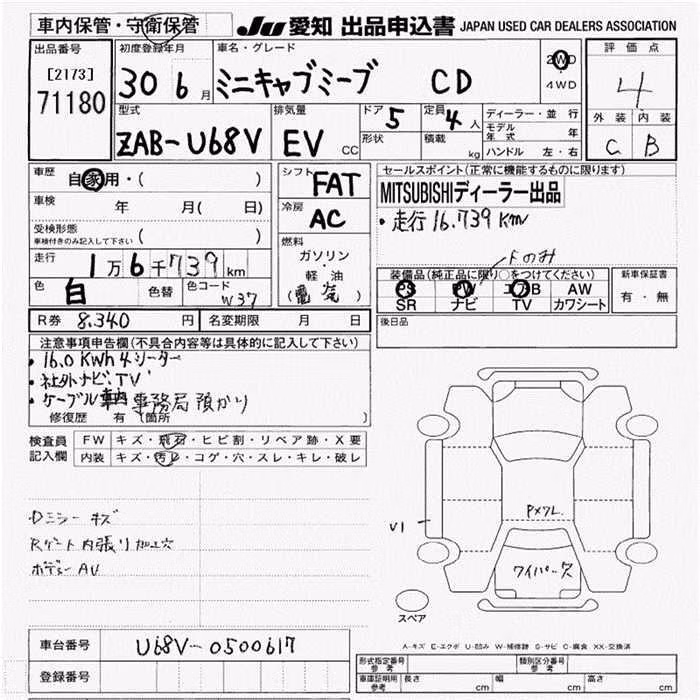 車内保管・守衛保管
JU 愛知 出品申込書 JAPAN USED CAR DEALERS ASSOCIATION
出品番号
[2173]
71180
初度登録年月
30 6 月
車名・グレード
ミニキャブミーブ CD
2WD
4WD
評価点
4
外装 内装
C B
型式
ZAB-U68V
排気量
EV CC
ドア 5
形状
定員 4 人
積載 kg
ディーラー・並行
モデル年式 年
ハンドル 左・右
車歴
自家用・( )
車検 年 月( 日)
受検形態
車検付きのみ記入して下さい ( )
走行
1万6千739km
色
白
色替
色コード
W37
シフト
FAT
冷房
AC
燃料
ガソリン
軽・油
(電気)
セールスポイント(正常に機能するものに限ります)
MITSUBISHIディーラー出品
・走行16.739Km
ドのみ
装備品(純正品に限り○をつけてください)
PS PW エアB AW
SR ナビ TV カワシート
新車保証書
有・無
後日品
R券 8.340 円
名変期限 月 日
注意事項申告欄(不具合内容等は具体的に記入して下さい)
・16.0 KWh 4シーター
・社外ナビ.TV
・ケーブル車内 事務局預かり
修復歴 有(箇所
検査員記入欄
FW キズ・飛石・ヒビ割・リペア跡・X要
内装 キズ・汚レ・コゲ・穴・スレ・キレ・破レ
Dミラーキズ
Rゲート内張り加工穴
ボディーAU
V1
PXワレ
ワイパー欠
スペア
A-キズ E-エクボ U-凹み W-補修跡 S-サビ C-腐食 XX-交換済
車台番号
U68V-0500617
登録番号
形式指定番号 参考
類別区分番号 参考
車庫証明用 参考
長さ cm
幅 cm
高さ cm